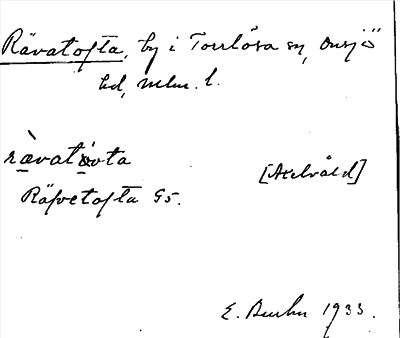 Rävatofta, by i Torrlösa sn, Onsjö
hd, Mlm. l.
rævatòvta
[Axelvåld]
Räfvetofta G5.
E. 1933.